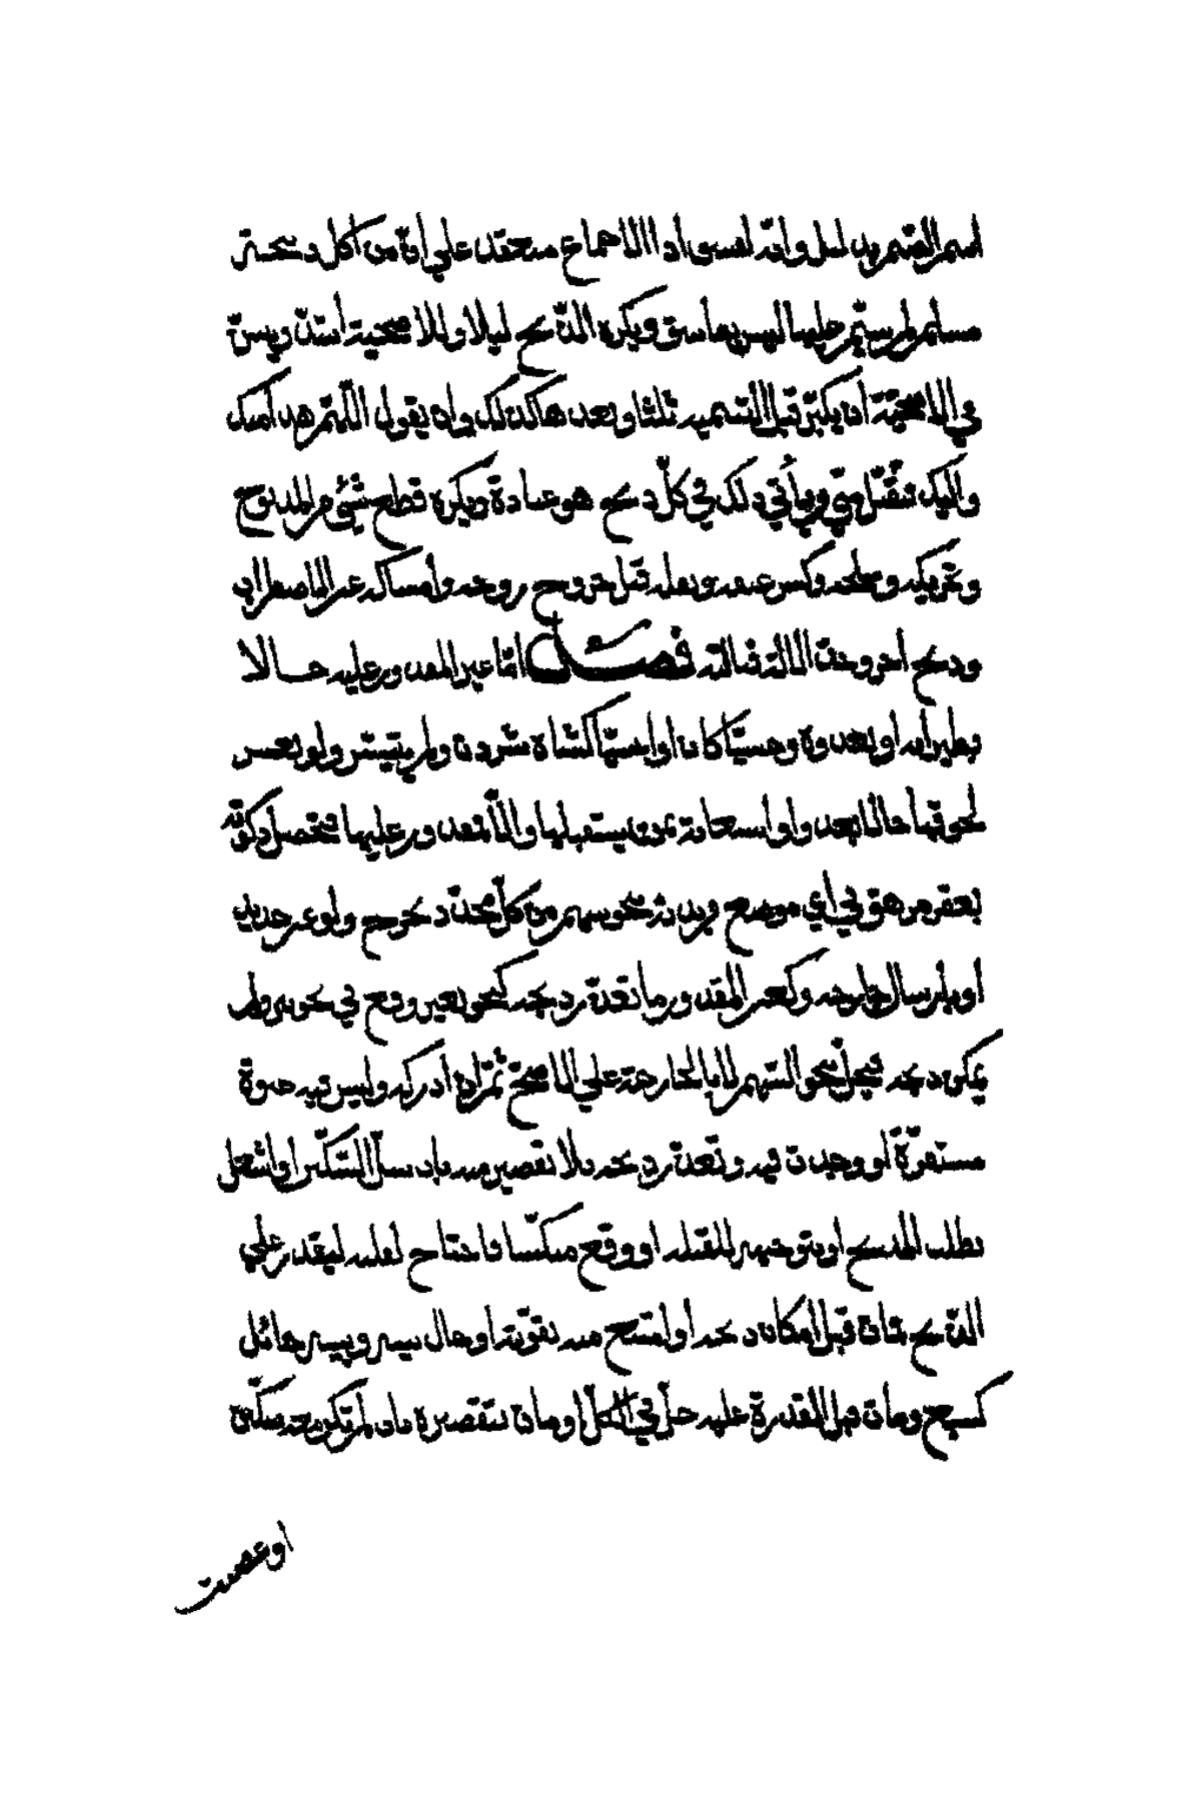 اسم الصنم بدليل وانه لفسق اذ الاجماع منعقد علي ان من اكل ذبيحة
مسلم لم يسم عليها ليس بفاسق ويكره الذبح ليلا وللاضحية اشد ويسن
في الاضحية ان يكبر قبل التسمية ثلثا وبعدها كذلك وان يقول اللهم هذا منك
واليك فتقبل مني ويأتي ذلك في كل ذبح هو عبادة ويكره قطع شيئ من المذبوح
وتحريكه وسلخه وكسر عنقه ونقله قبل خروج روحه وامساكه عن الاضطراب
وذبح اخر وحد الالة قبالته فصل اما غير المقدور عليه حالا
بطيرانه او بعدوه وحشيا كان او انسيا كشاة شردت ولم يتيسر ولو بعسر
لحوقها حالا بعدو او استعانة بمن يستقبلها والا فمقدور عليها فتحصل ذكوته
بعقر مزهق في اي موضع وبدنه بنحو سهم من كل محدد بجرح ولو غير حديد
او بارسال جارحه وكغير المقدور ما تعذر ذبحه كنحو بعير وقع في نحو بئر ولم
يمكن ذبحه فيحل بنحو السهم لا بالجارحة علي الاصح ثم ان ادركه وليس فيه حيوة
مستقرة او وجدت فيه وتعذر ذبحه بلا تقصير منه بان سل السكين او اشتغل
بطلب المذبح او بتوجيهه للقبلة او وقع منكسا فاحتاج لقلبه ليقدر علي
الذبح فمات قبل امكان ذبحه او امتنع منه بقوته او حال بينه وبينه حائل
كسبع ومات قبل القدرة عليه حل في الكل او مات بتقصيره بان لم تكن معه سكين
او غصبت